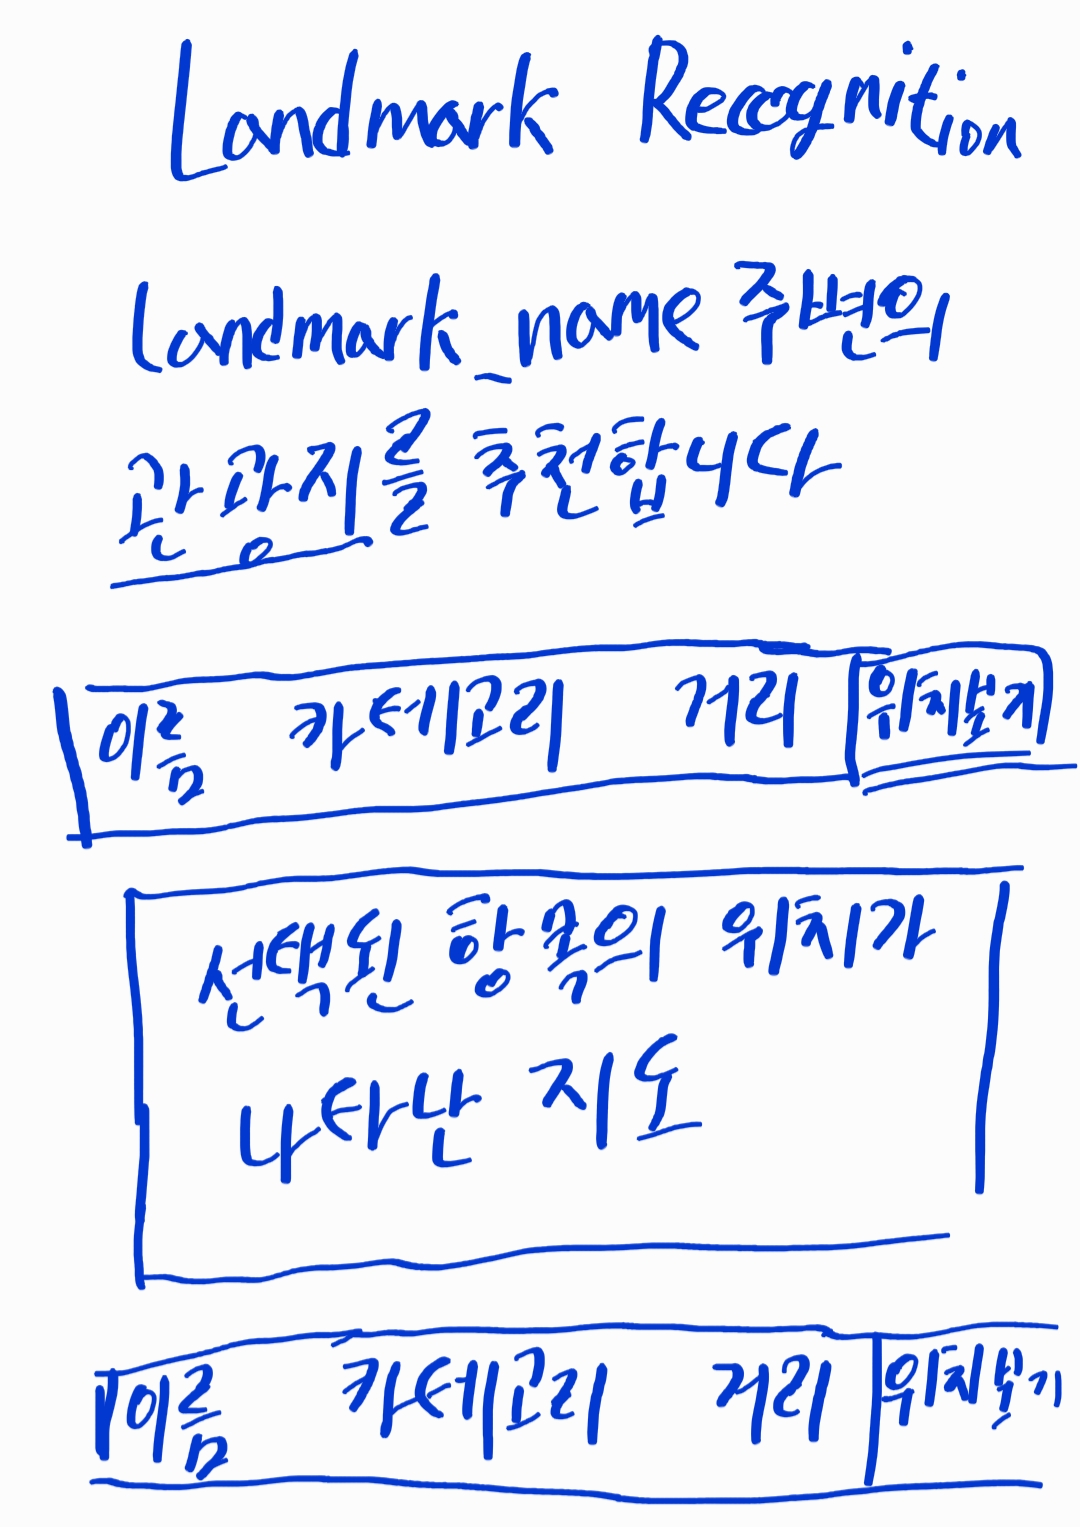 Landmark Recognition
Landmark_name 주변의
관광지를 추천합니다
이름 카테고리 거리 위치보기
선택된 항목의 위치가
나타난 지도
이름 카테고리 거리 위치보기